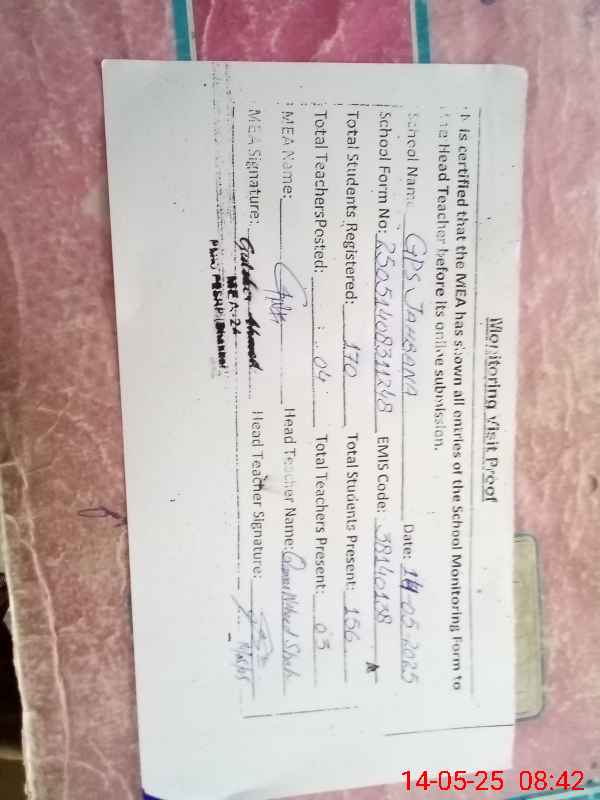 Monitoring Visit Proof
It is certified that the MEA has shown all entries of the School Monitoring Form to
the Head Teacher before its online submission.
School Name GPS JAMBONA Date: 14-05-2025
School Form No: 25051408311248 EMIS Code: 38140138
Total Students Registered: 170 Total Students Present: 156
Total TeachersPosted: 04 Total Teachers Present: 03
MEA Name: Head Teacher Name: Shah
MEA Signature: Gulsher Ahmed Head Teacher Signature:
MEA-24
14-05-25 08:42